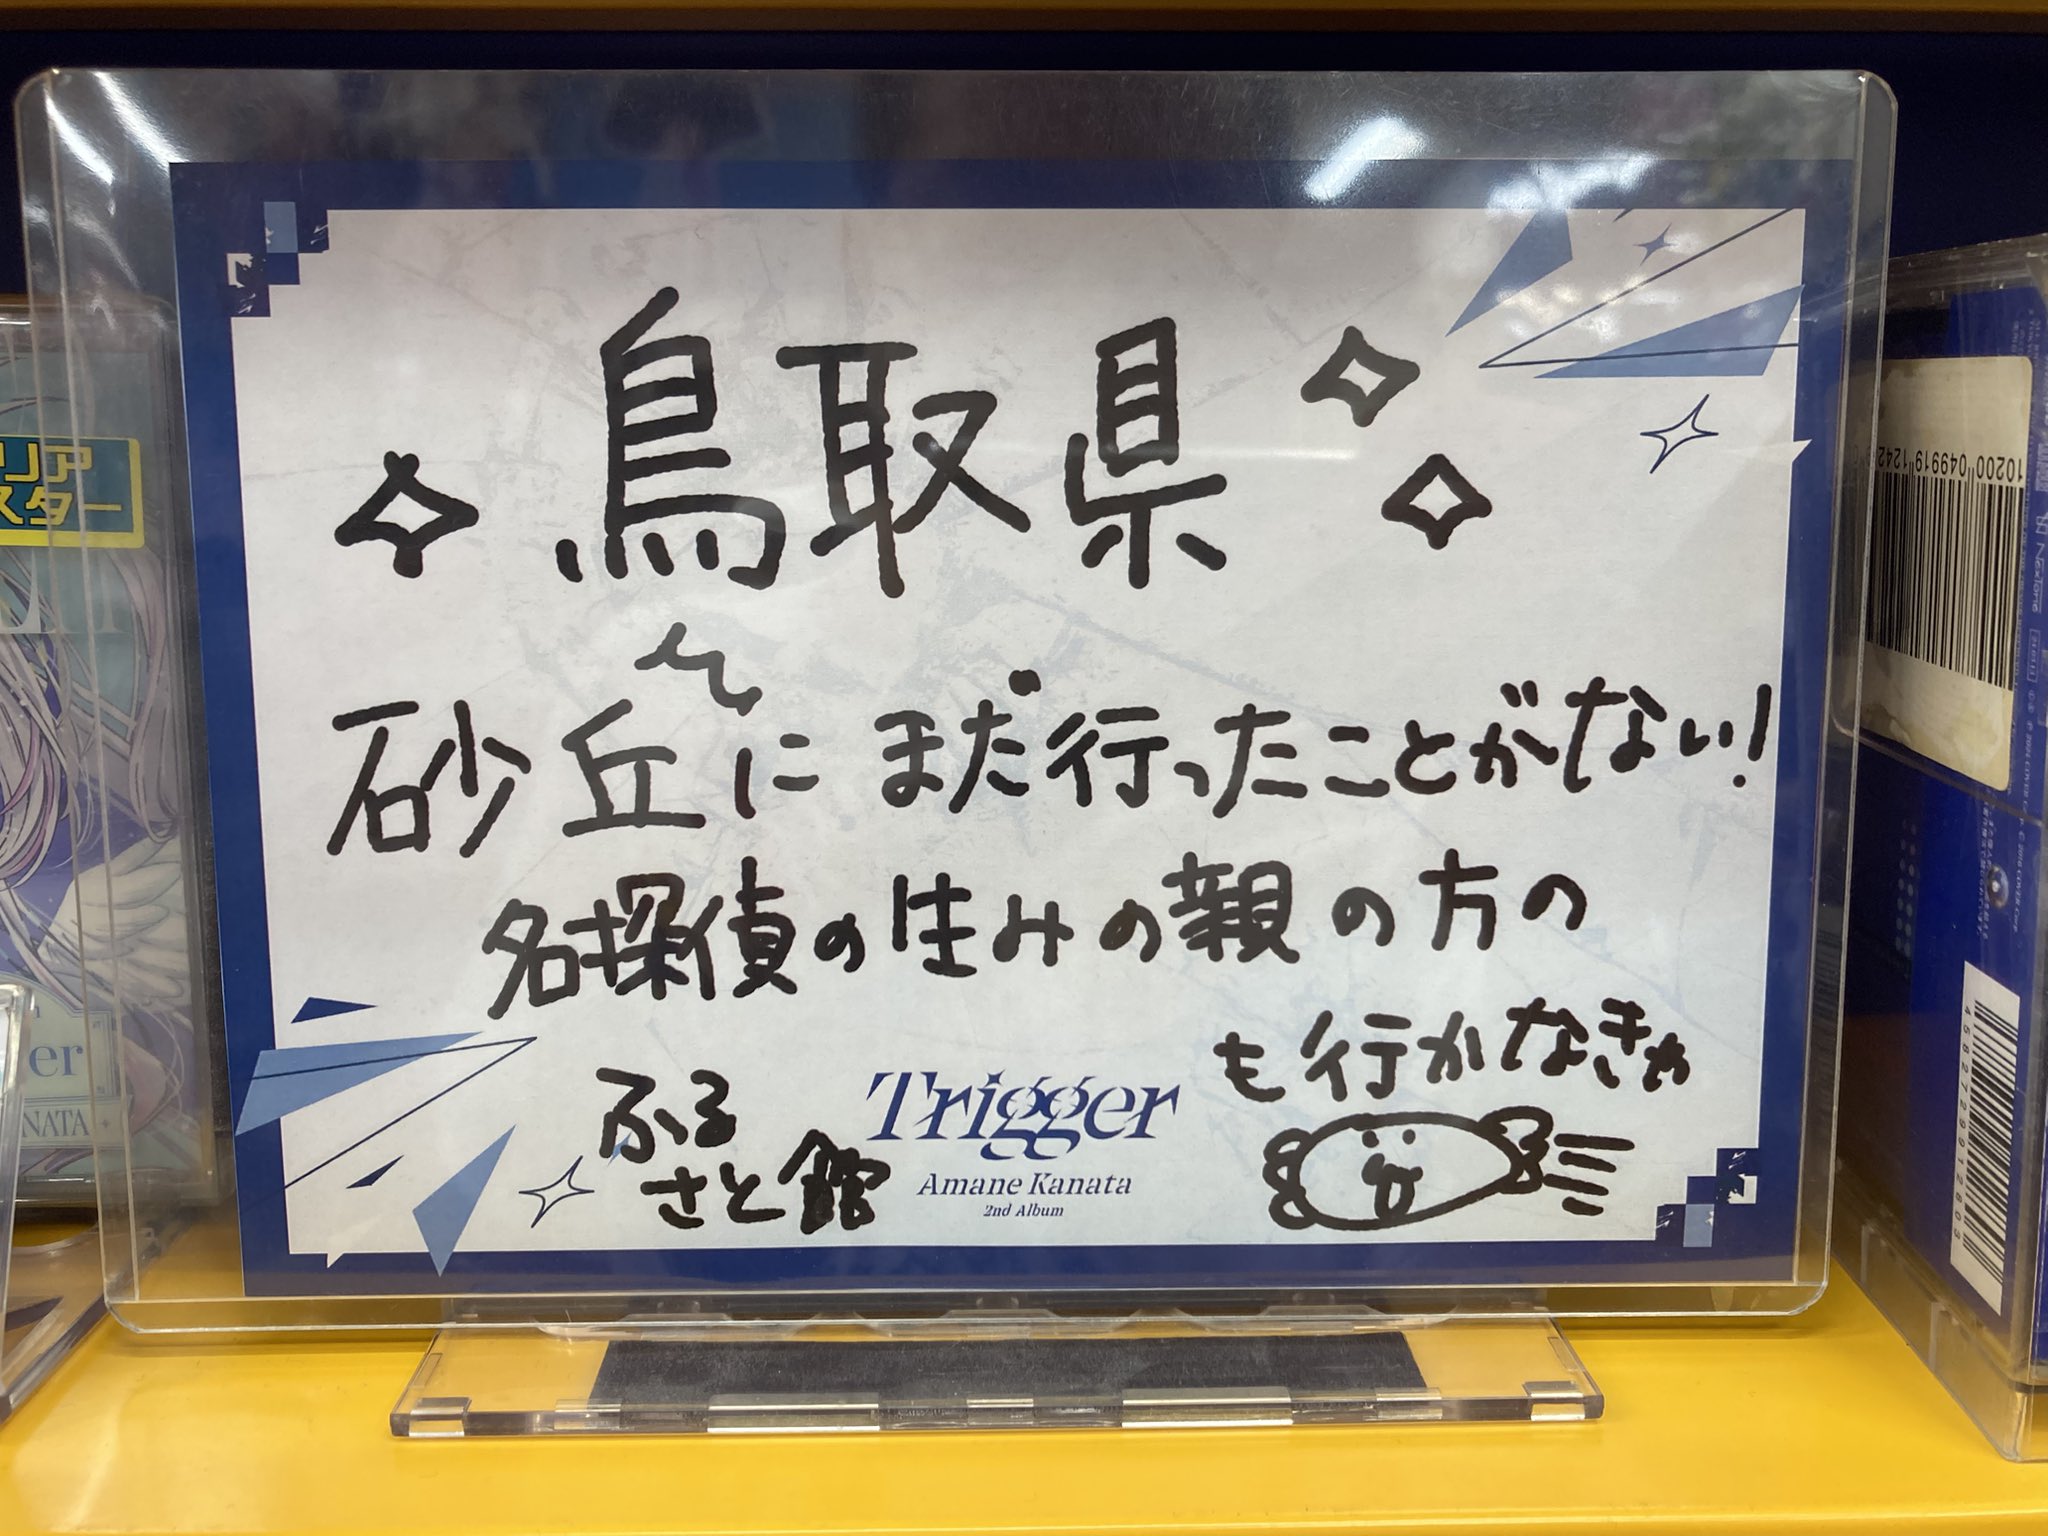 鳥取県
砂丘にまだ行ったことがない!
名探偵の生みの親の方の
ふるさと館
も行かなきゃ
Trigger
Amane Kanata
2nd Album
リア
スター
er
NATA
10200 049919 1242
NexTone
4582729912603